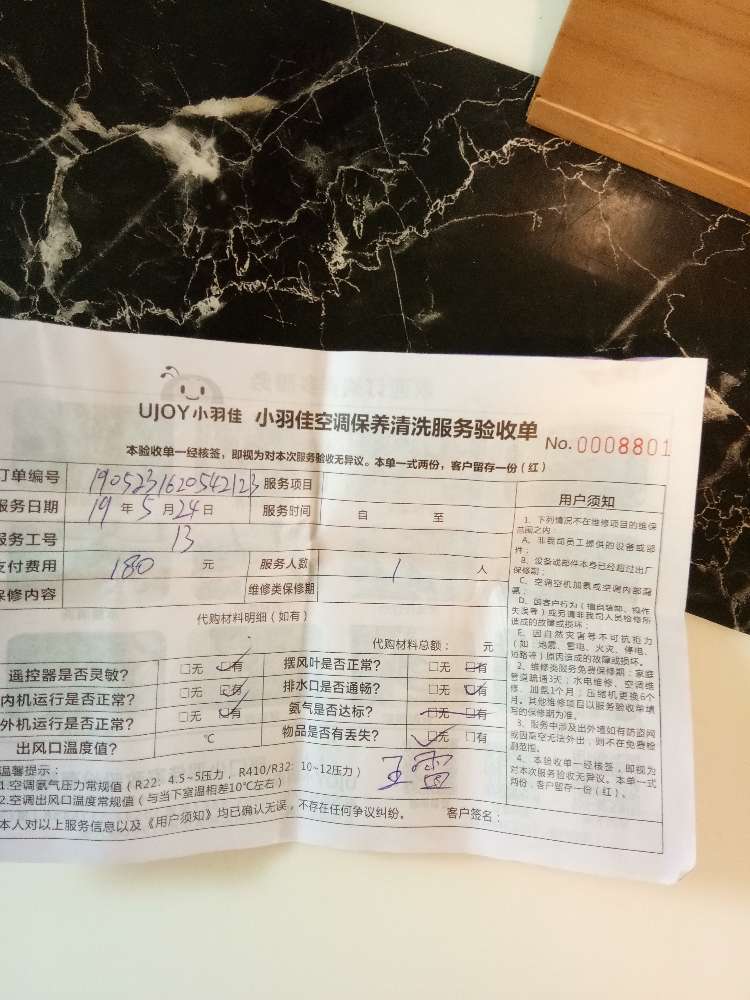 UJOY小羽佳 小羽佳空调保养清洗服务验收单 No. 0008801
本验收单一经核签，即视为对本次服务验收无异议。本单一式两份，客户留存一份（红）
订单编号 1905231620542123 服务项目
服务日期 19 年 5 月 24 日 服务时间 自 至
服务工号 13
支付费用 180 元 服务人数 1 人
保修内容 维修类保修期
代购材料明细（如有）
代购材料总额： 元
遥控器是否灵敏？ □无 □有 摆风叶是否正常？ □无 □有
内机运行是否正常？ □无 □有 排水口是否通畅？ □无 □有
外机运行是否正常？ □无 □有 氨气是否达标？ □无 □有
出风口温度值？ ℃ 物品是否有丢失？ □无 □有
温馨提示：
1.空调氨气压力常规值（R22：4.5~5压力，R410/R32：10~12压力）
2.空调出风口温度常规值（与当下室温相差10℃左右）
王雷
本人对以上服务信息以及《用户须知》均已确认无误，不存在任何争议纠纷。 客户签名：
用户须知
1、下列情况不在维修项目的维保
范围之内：
A、非我司员工提供的设备或部
件；
B、设备或部件本身已经超过出厂
保修期；
C、空调空机加氨或空调内部漏
氨；
D、因客户行为（擅自装卸、操作
失误等）或另请非我司人员检修所
造成的故障或损坏；
E、因自然灾害等不可抗拒力
（如：地震、雷电、火灾、停电、
短路等）原因造成的故障或损坏。
2、维修类服务免费保修期：家庭
管道疏通3天；水电维修、空调维
修、加氨1个月；压缩机更换6个
月。其他维修项目以服务验收单填
写的保修期为准。
3、服务中涉及出外墙如有防盗网
或因高空无法外出，则不在免费检
测范围。
4、本验收单一经核签，即视为
对本次服务验收无异议。本单一式
两份，客户留存一份（红）。